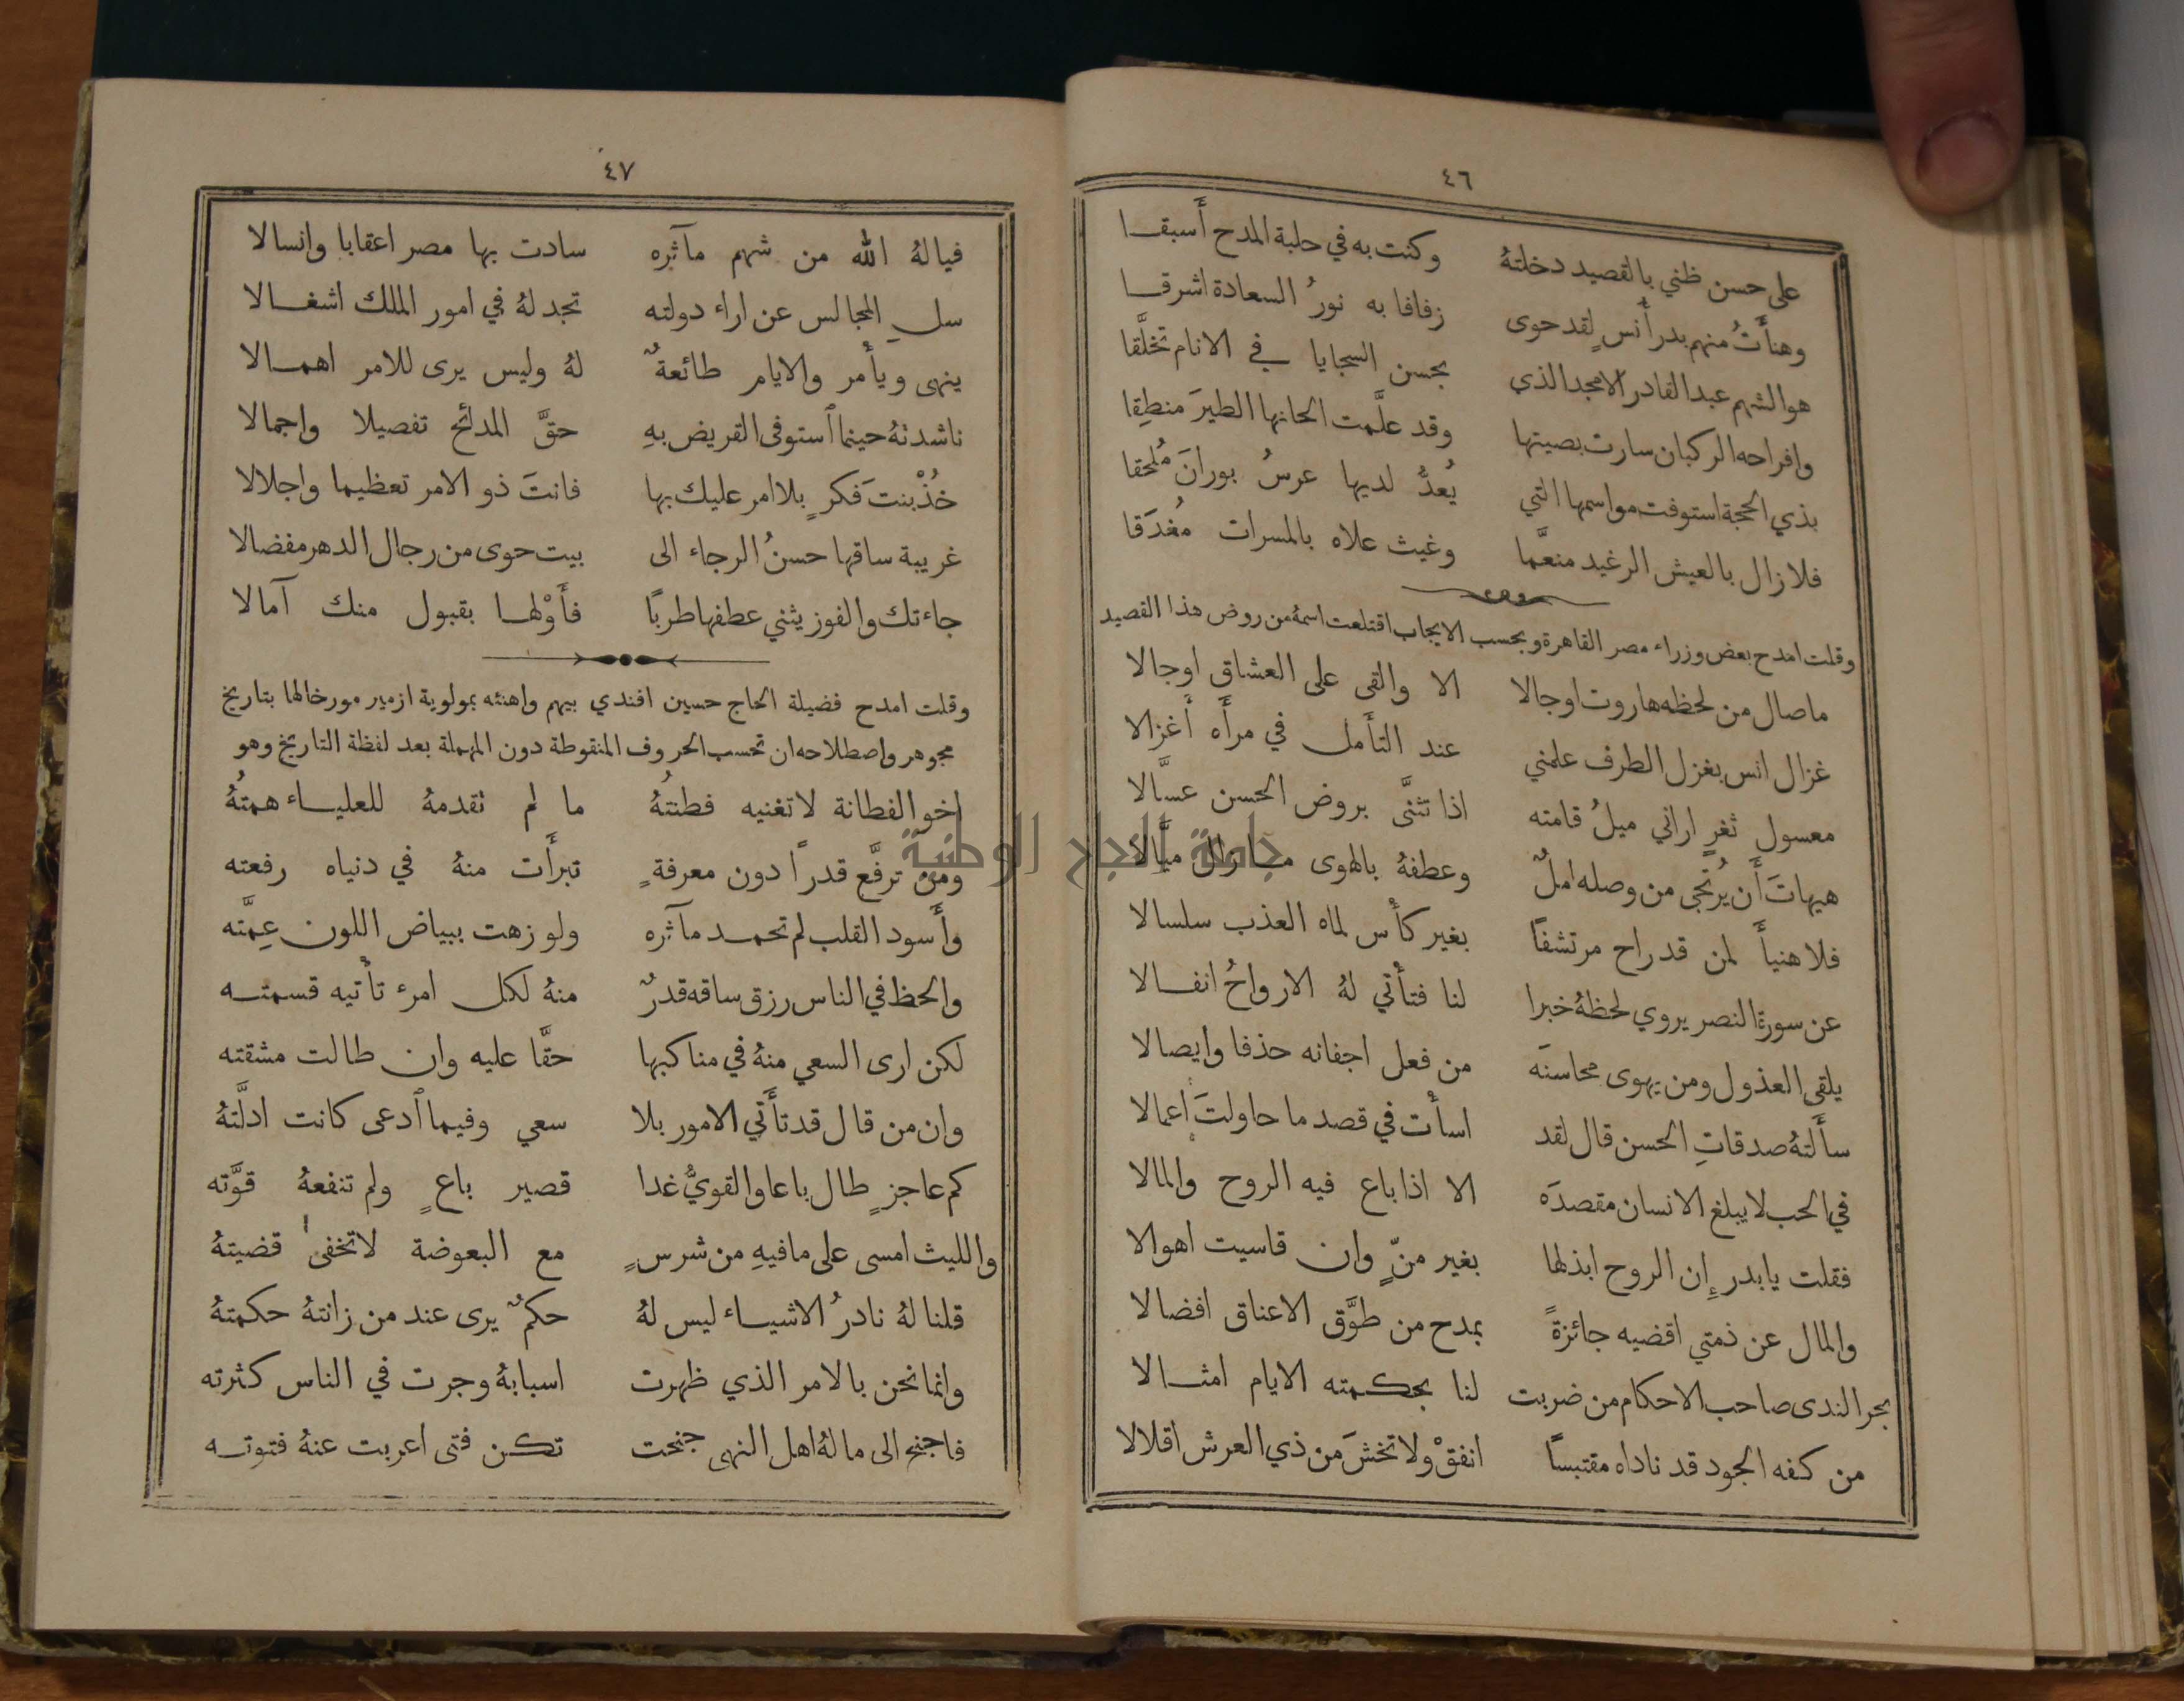 ٤٦
على حسن ظني بالقصيد دخلتهُ وكنت به في حلبة المدح أَسبقــا
وهنأَتُ منهم بدر أُنسٍ لقد حوى زفافا به نورُ السعادة اشرقــا
هو الشهم عبد القادر الامجد الذي بحسن السجايا في الانام تخلَّقا
وافراحه الركبان سارت بصيتها وقد علَّمت الحانها الطيرَ منطِقا
بذي الحجة استوفت مواسمها التي يُعدُّ لديها عرسُ بورانَ مُلحقا
فلا زال بالعيش الرغيد منعَّما وغيث علاه بالمسرات مُغدَقا
وقلت امدح بعض وزراء مصر القاهرة وبحسب الايجاب اقتلعت اسمهُ من روض هذا القصيد
ما صال من لحظه هاروت اوجالا الا والقى على العشاق اوجالا
غزال انس بغزل الطرف علمني عند التأَمل في مرأَه أَغزالا
معسول ثغرٍ اراني ميلُ قامته اذا تثنَّى بروض الحسن عسَّالا
هيهاتَ أَن يُرتجى من وصله املٌ وعطفهُ بالهوى ما زال ميَّالا
فلا هنيأً لمن قد راح مرتشفاً بغير كأْس لماه العذب سلسالا
عن سورة النصر يروي لحظهُ خبرا لنا فتأْتي لهُ الارواحُ انفــالا
يلقى العذول ومن يهوى محاسنَه من فعل اجفانه حذفا وايصالا
سأَلتهُ صدقاتِ الحسن قال لقد اسأْت في قصد ما حاولتَ اعمالا
في الحب لا يبلغ الانسان مقصدَه الا اذا باع فيه الروح والمالا
فقلت يا بدر إِن الروح ابذلها بغير منٍّ وان قاسيت اهوالا
والمال عن ذمتي اقضيه جائزةً بمدح من طوَّق الاعناق افضالا
بحر الندى صاحب الاحكام من ضربت لنا بحكمته الايام امثــالا
من كفه الجود قد ناداه مقتبساً انفقْ ولا تخشَ من ذي العرش اقلالا
٤٧
فيا لهُ الله من شهم مآثره سادت بها مصر اعقابا وانسالا
سلِ المجالس عن اراء دولته تجد لهُ في امور الملك اشغــالا
ينهى ويأْمر والايام طائعةٌ لهُ وليس يرى للامر اهمــالا
ناشدتهُ حينما ٱستوفى القريض بهِ حقَّ المدائح تفصيلا واجمالا
خُذْ بنتَ فكرٍ بلا امر عليك بها فانتَ ذو الامر تعظيما واجلالا
غريبة ساقها حسنُ الرجاء الى بيت حوى من رجال الدهر مفضالا
جاءتك والفوز يثني عطفها طربًا فأَوْلهــا بقبول منك آمالا
وقلت امدح فضيلة الحاج حسين افندي بيهم واهنئه بمولوية ازمير مورخا لها بتاريخ
مجوهر واصطلاحه ان تحسب الحروف المنقوطة دون المهملة بعد لفظة التاريخ وهو
اخو الفطانة لا تغنيه فطنتهُ ما لم تقدمهُ للعليــاء همتهُ
ومن ترفَّع قدرًا دون معرفةٍ تبرأَت منهُ في دنياه رفعته
وأَسود القلب لم تحمــد مآثره ولو زهت ببياض اللون عِمَّته
والحظ في الناس رزق ساقه قدرٌ منهُ لكل امرء تأْتيه قسمتــه
لكن ارى السعي منهُ في مناكبها حقَّا عليه وان طالت مشقته
وان من قال قد تأَتي الامور بلا سعي وفيما ٱدعى كانت ادلَّتهُ
كم عاجزٍ طال باعا والقويُّ غدا قصير باعٍ ولم تنفعهُ قوَّته
والليث امسى على ما فيهِ من شرسٍ مع البعوضة لا تخفى قضيتهُ
قلنا لهُ نادرُ الاشيــاء ليس لهُ حكمٌ يرى عند من زانتهُ حكمتهُ
وانما نحن بالامر الذي ظهرت اسبابهُ وجرت في الناس كثرته
فاجنح الى ما لهُ اهل النهى جنحت تكــن فتى اعربت عنهُ فتوتــه
جامعة النجاح الوطنية